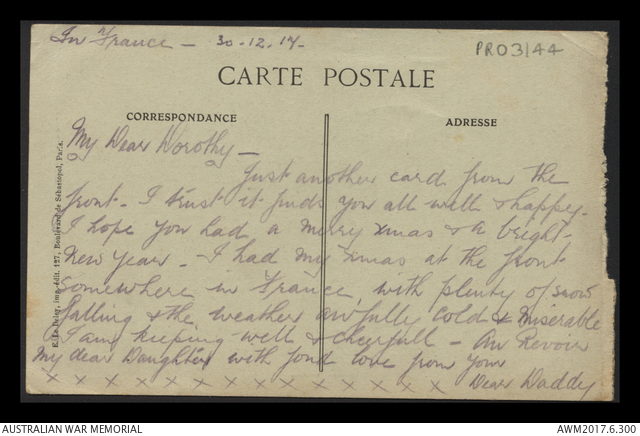 In France – 30.12.17–
PRO3144
CARTE POSTALE
CORRESPONDANCE
ADRESSE
My Dear Dorothy –
Just another card from the
front – I trust it finds you all well & happy –
I hope you had a merry xmas & a bright
New Year – I had my Xmas at the front
Somewhere in France, with plenty of snow
falling & the weather awfully cold & Miserable
I am keeping well & cheerfull – Au Revoir
My dear Daughter with fond love from your
Dear Daddy
x x x x x x x x x x x x x x x x
imp.-édit. 127, Boulevard de Sébastopol, Paris.
AUSTRALIAN WAR MEMORIAL
AWM2017.6.300